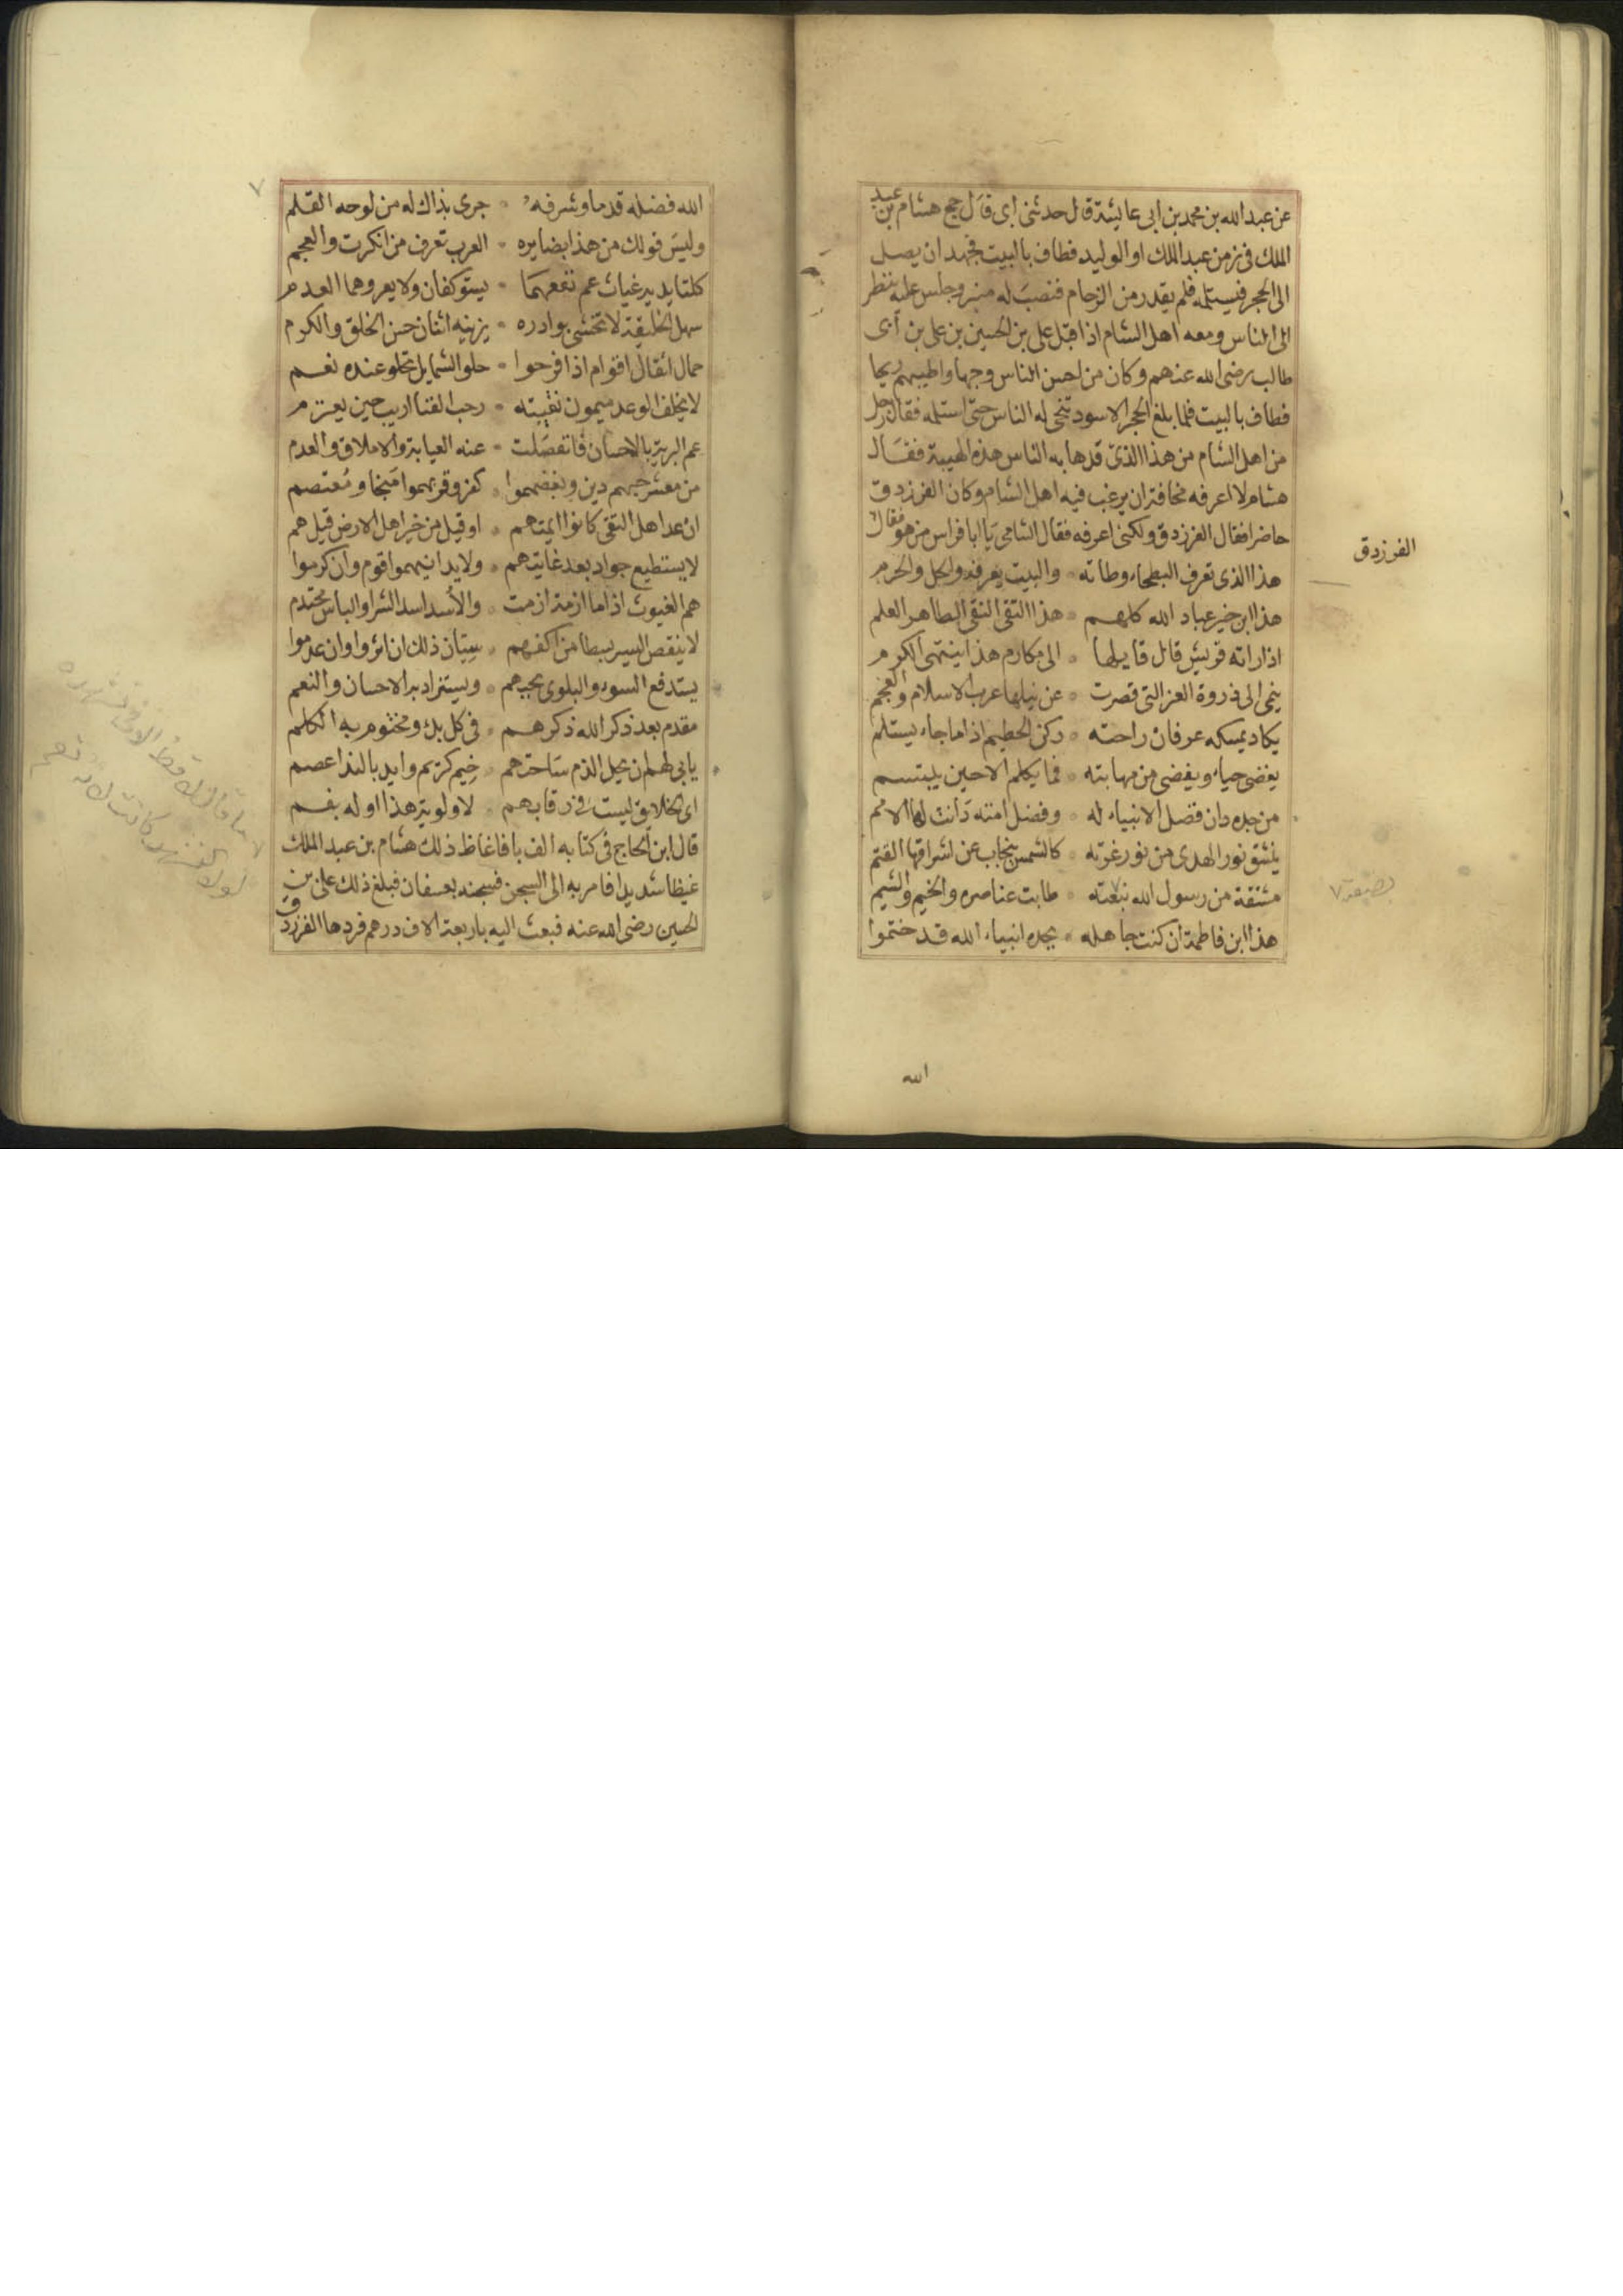 عن عبد الله بن محمد بن ابى عايشة قال حدثنى ابى قال حج هشام بن عبد
الملك فى زمن عبد الملك او الوليد فطاف بالبيت فجهد ان يصل
الى الحجر فيستلمه فلم يقدر من الزحام فنصب له منبر وجلس عليه ينظر
الى الناس ومعه اهل الشام اذ اقبل على بن الحسين بن على بن ابى
طالب رضى الله عنهم وكان من احسن الناس وجها واطيبهم ريحا
فطاف بالبيت فلما بلغ الحجر الاسود تنحى له الناس حتى استلمه فقال رجل
من اهل الشام من هذا الذى قد هابه الناس هذه الهيبة فقال
هشام لا اعرفه مخافة ان يرغب فيه اهل الشام وكان الفرزدق
حاضرا فقال الفرزدق ولكنى اعرفه فقال الشامى يا ابا فراس من هو فقال
الفرزدق
هذا الذى تعرف البطحاء وطاته والبيت يعرفه والحل والحرم
هذا ابن خير عباد الله كلهم هذا التقى النقى الطاهر العلم
اذا راته قريش قال قايلها الى مكارم هذا ينتهى الكرم
ينمى الى ذروة العز التى قصرت عن نيلها عرب الاسلام والعجم
يكاد يمسكه عرفان راحته ركن الحطيم اذا ما جاء يستلم
يغضى حياء ويغضى من مهابته فما يكلم الا حين يبتسم
من جده دان فضل الانبياء له وفضل امته دانت لها الامم
ينشق نور الهدى من نور غرته كالشمس ينجاب عن اشراقها القتم
مشتقة من رسول الله نبعته طابت عناصره والخيم والشيم
هذا ابن فاطمة ان كنت جاهله بجده انبياء الله قد ختموا
الله
٧
الله فضله قدما وشرفه جرى بذاك له من لوحه القلم
وليس قولك من هذا بضايره العرب تعرف من انكرت والعجم
كلتا يديه غياث عم نفعهما يستوكفان ولا يعروهما العدم
سهل الخليقة لا تخشى بوادره يزينه اثنان حسن الخلق والكرم
حمال اثقال اقوام اذا فرحوا حلو الشمايل تحلو عنده نعم
لا يخلف الوعد ميمون نقيبته رحب الفنا اريب حين يعتزم
عم البرية بالاحسان فانفصلت عنه العيابة والاملاق والعدم
من معشر حبهم دين وبغضهموا كفر وقربهموا منجا ومعتصم
ان عد اهل التقى كانوا ايمتهم او قيل من خير اهل الارض قيل هم
لا يستطيع جواد بعد غايتهم ولا يدانيهموا قوم وان كرموا
هم الغيوث اذا ما ازمة ازمت والاسد اسد الشرا والباس محتدم
لا ينقص اليسر بسطا من اكفهم سيان ذلك ان اثروا وان عدموا
يستدفع السوء والبلوى بحبهم ويستزاد به الاحسان والنعم
مقدم بعد ذكر الله ذكرهم فى كل بدء ومختوم به الكلم
يابى لهم ان يحل الذم ساحتهم خيم كريم وايد بالندا عصم
اى الخلايق ليست فى رقابهم لاولوية هذا او له نعم
قال ابن الحاج فى كتابه الف با فاغاظ ذلك هشام بن عبد الملك
غيظا شديدا فامر به الى السجن فسجنه بعسفان فبلغ ذلك على بن
الحسين رضى الله عنه فبعث اليه باربعة الاف درهم فردها الفرزدق
ما قال لا قط الا فى تشهده
لولا التشهد كانت لاءه نعم